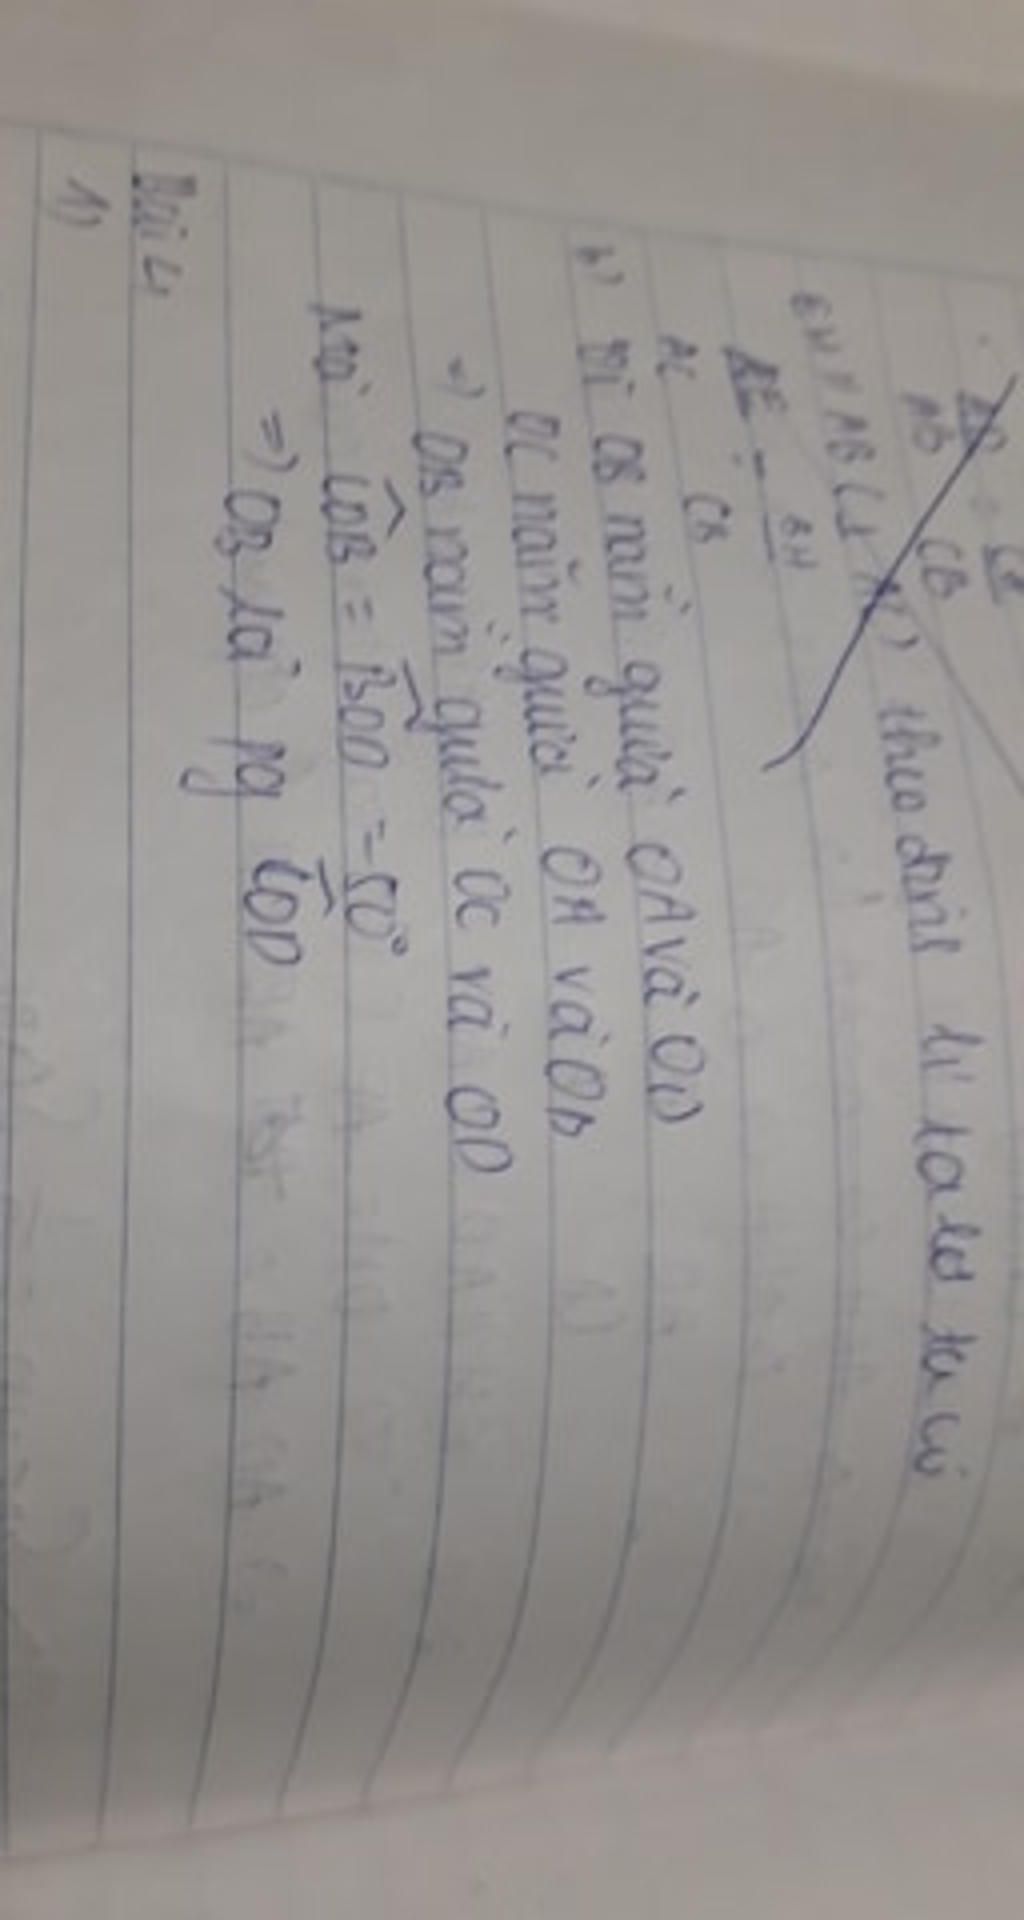 AB CB
EH // AB (⊥ AC) theo định lí talet ta có
AE = EH
AC CB
b) Vì OB nằm giữa OA và OD
OC nằm giữa OA và OB
=> OB nằm giữa OC và OD
Mà COB = BOD = 50°
=> OB là pg COD
Bài 4
1)